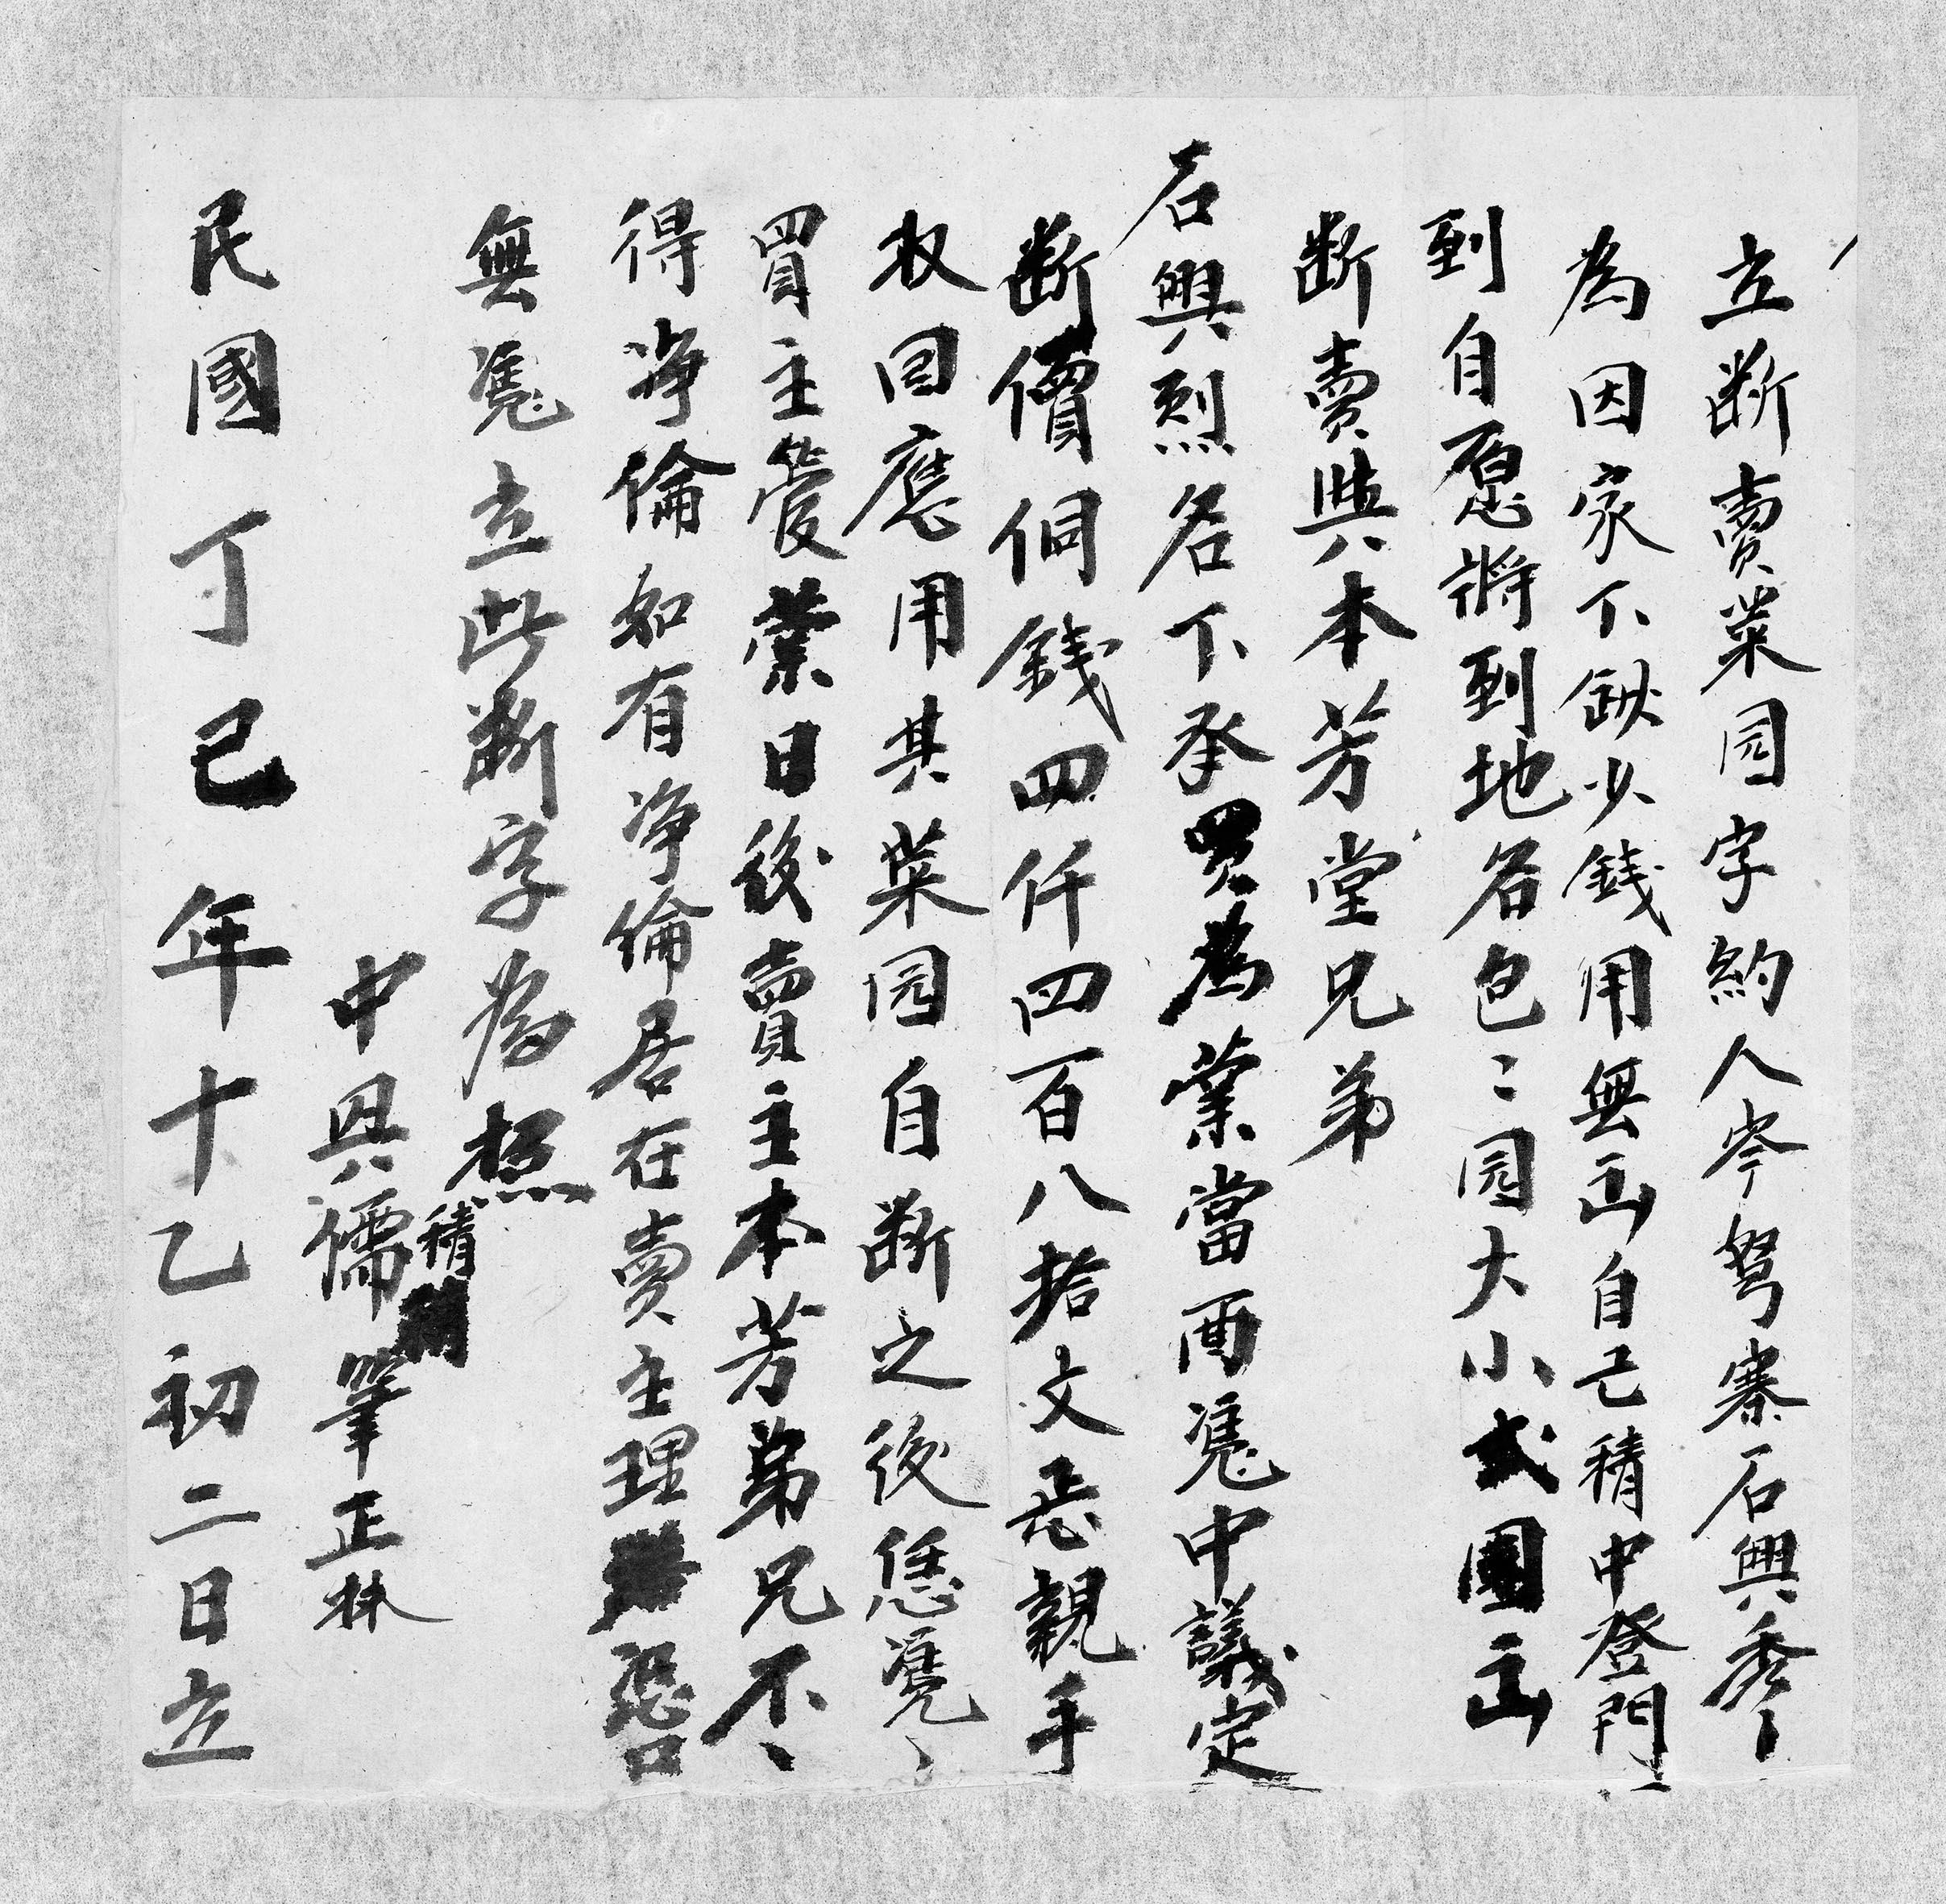 立断賣菜园字約人岑弩寨石興秀
為因家下缺少錢用無出自己積中登門
到自愿將到地名包二园大小弍園出
断賣與本芳堂兄弟
石興烈名下承買為業當面凴中議定
断價侗錢四仟四百八拾文忢親手
收回應用其菜园自断之後恁凴
買主管業日後賣主本芳弟兄不
得净倫如有净倫居在賣主理
無凴立此断字為照
積
中具儒筆正林
民國丁己年十乙初二日立